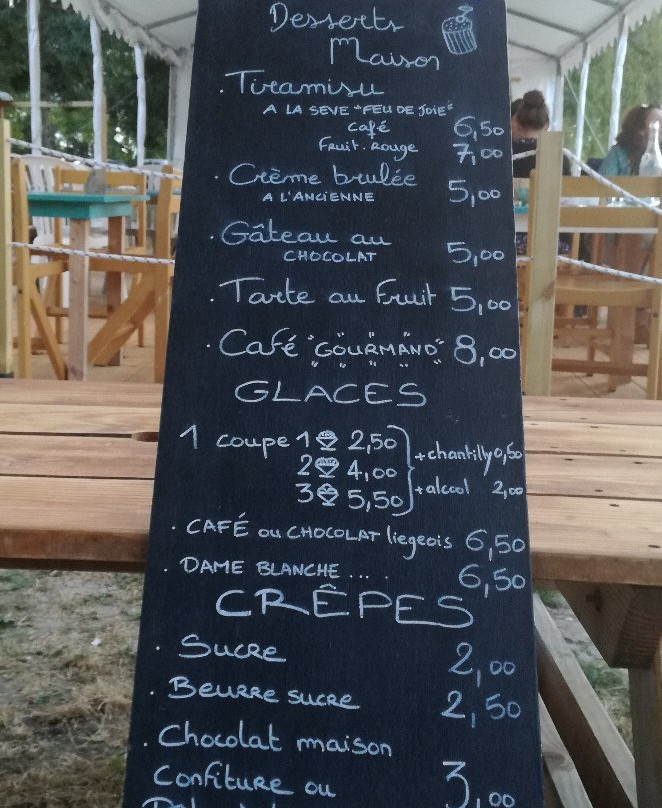 Desserts
Maison
· Tiramisu
A LA SEVE "FEU DE JOIE"
café 6,50
fruit. Rouge 7,00
· Crème brulée
A L'ANCIENNE 5,00
· Gâteau au
CHOCOLAT 5,00
· Tarte au fruit 5,00
· Café "GOURMAND" 8,00
GLACES
1 coupe 1 2,50
2 4,00
3 5,50
+ chantilly 0,50
+ alcool 2,00
· CAFÉ ou CHOCOLAT liegeois 6,50
· DAME BLANCHE .... 6,50
CRÊPES
· Sucre 2,00
· Beurre sucre 2,50
· Chocolat maison
Confiture ou 3,00